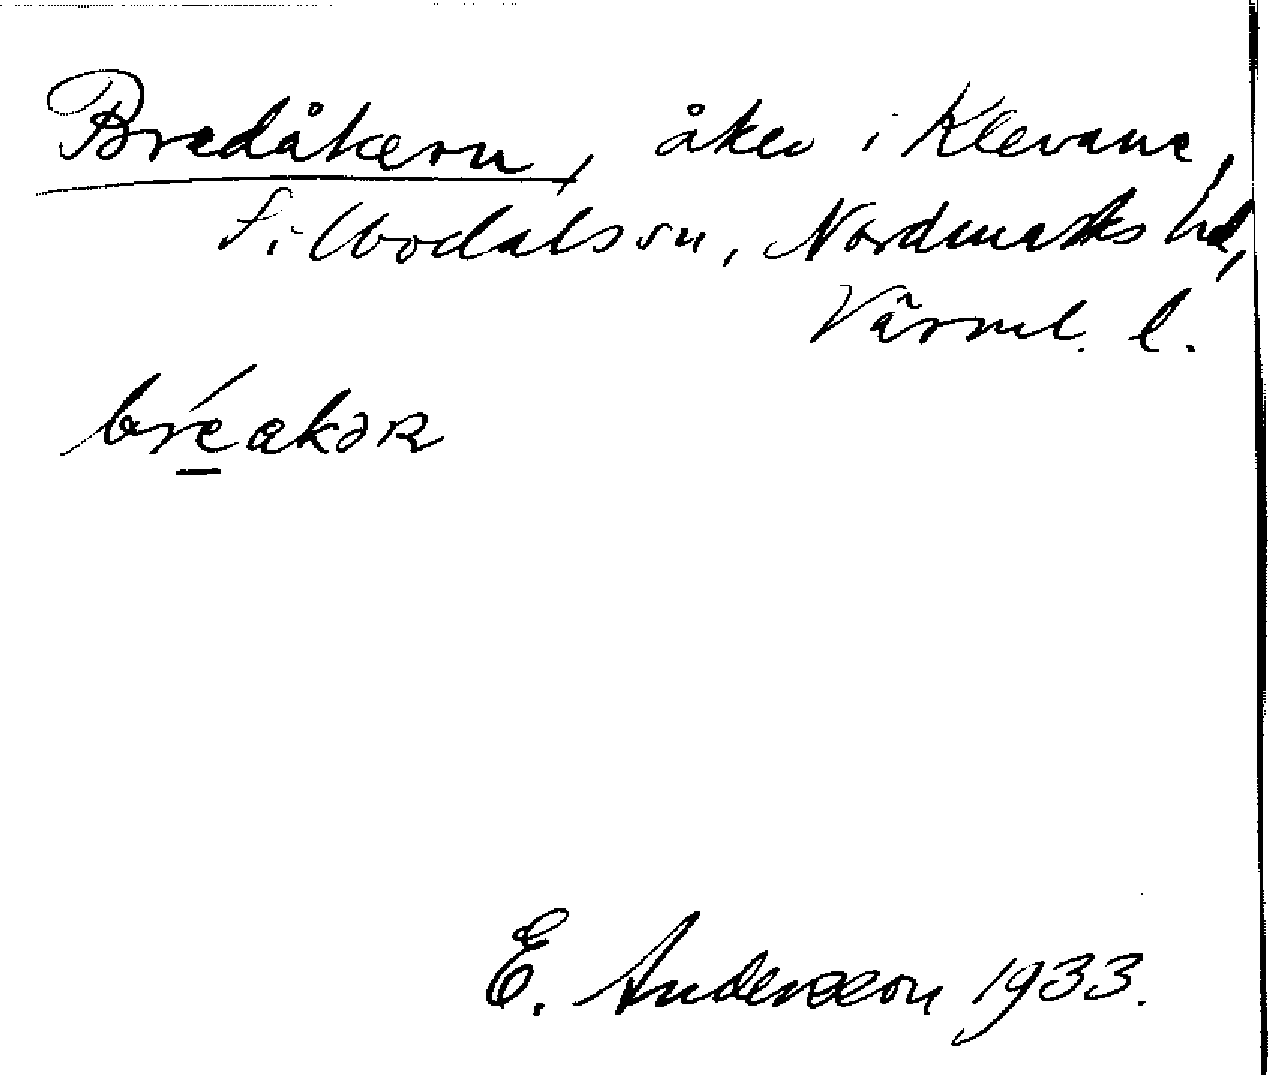 Bredåkern, åker i Klevane,
Silbodals sn, Nordmarks hd,
Värml. l.
bré̲akəʀ
E. Andersson 1933.